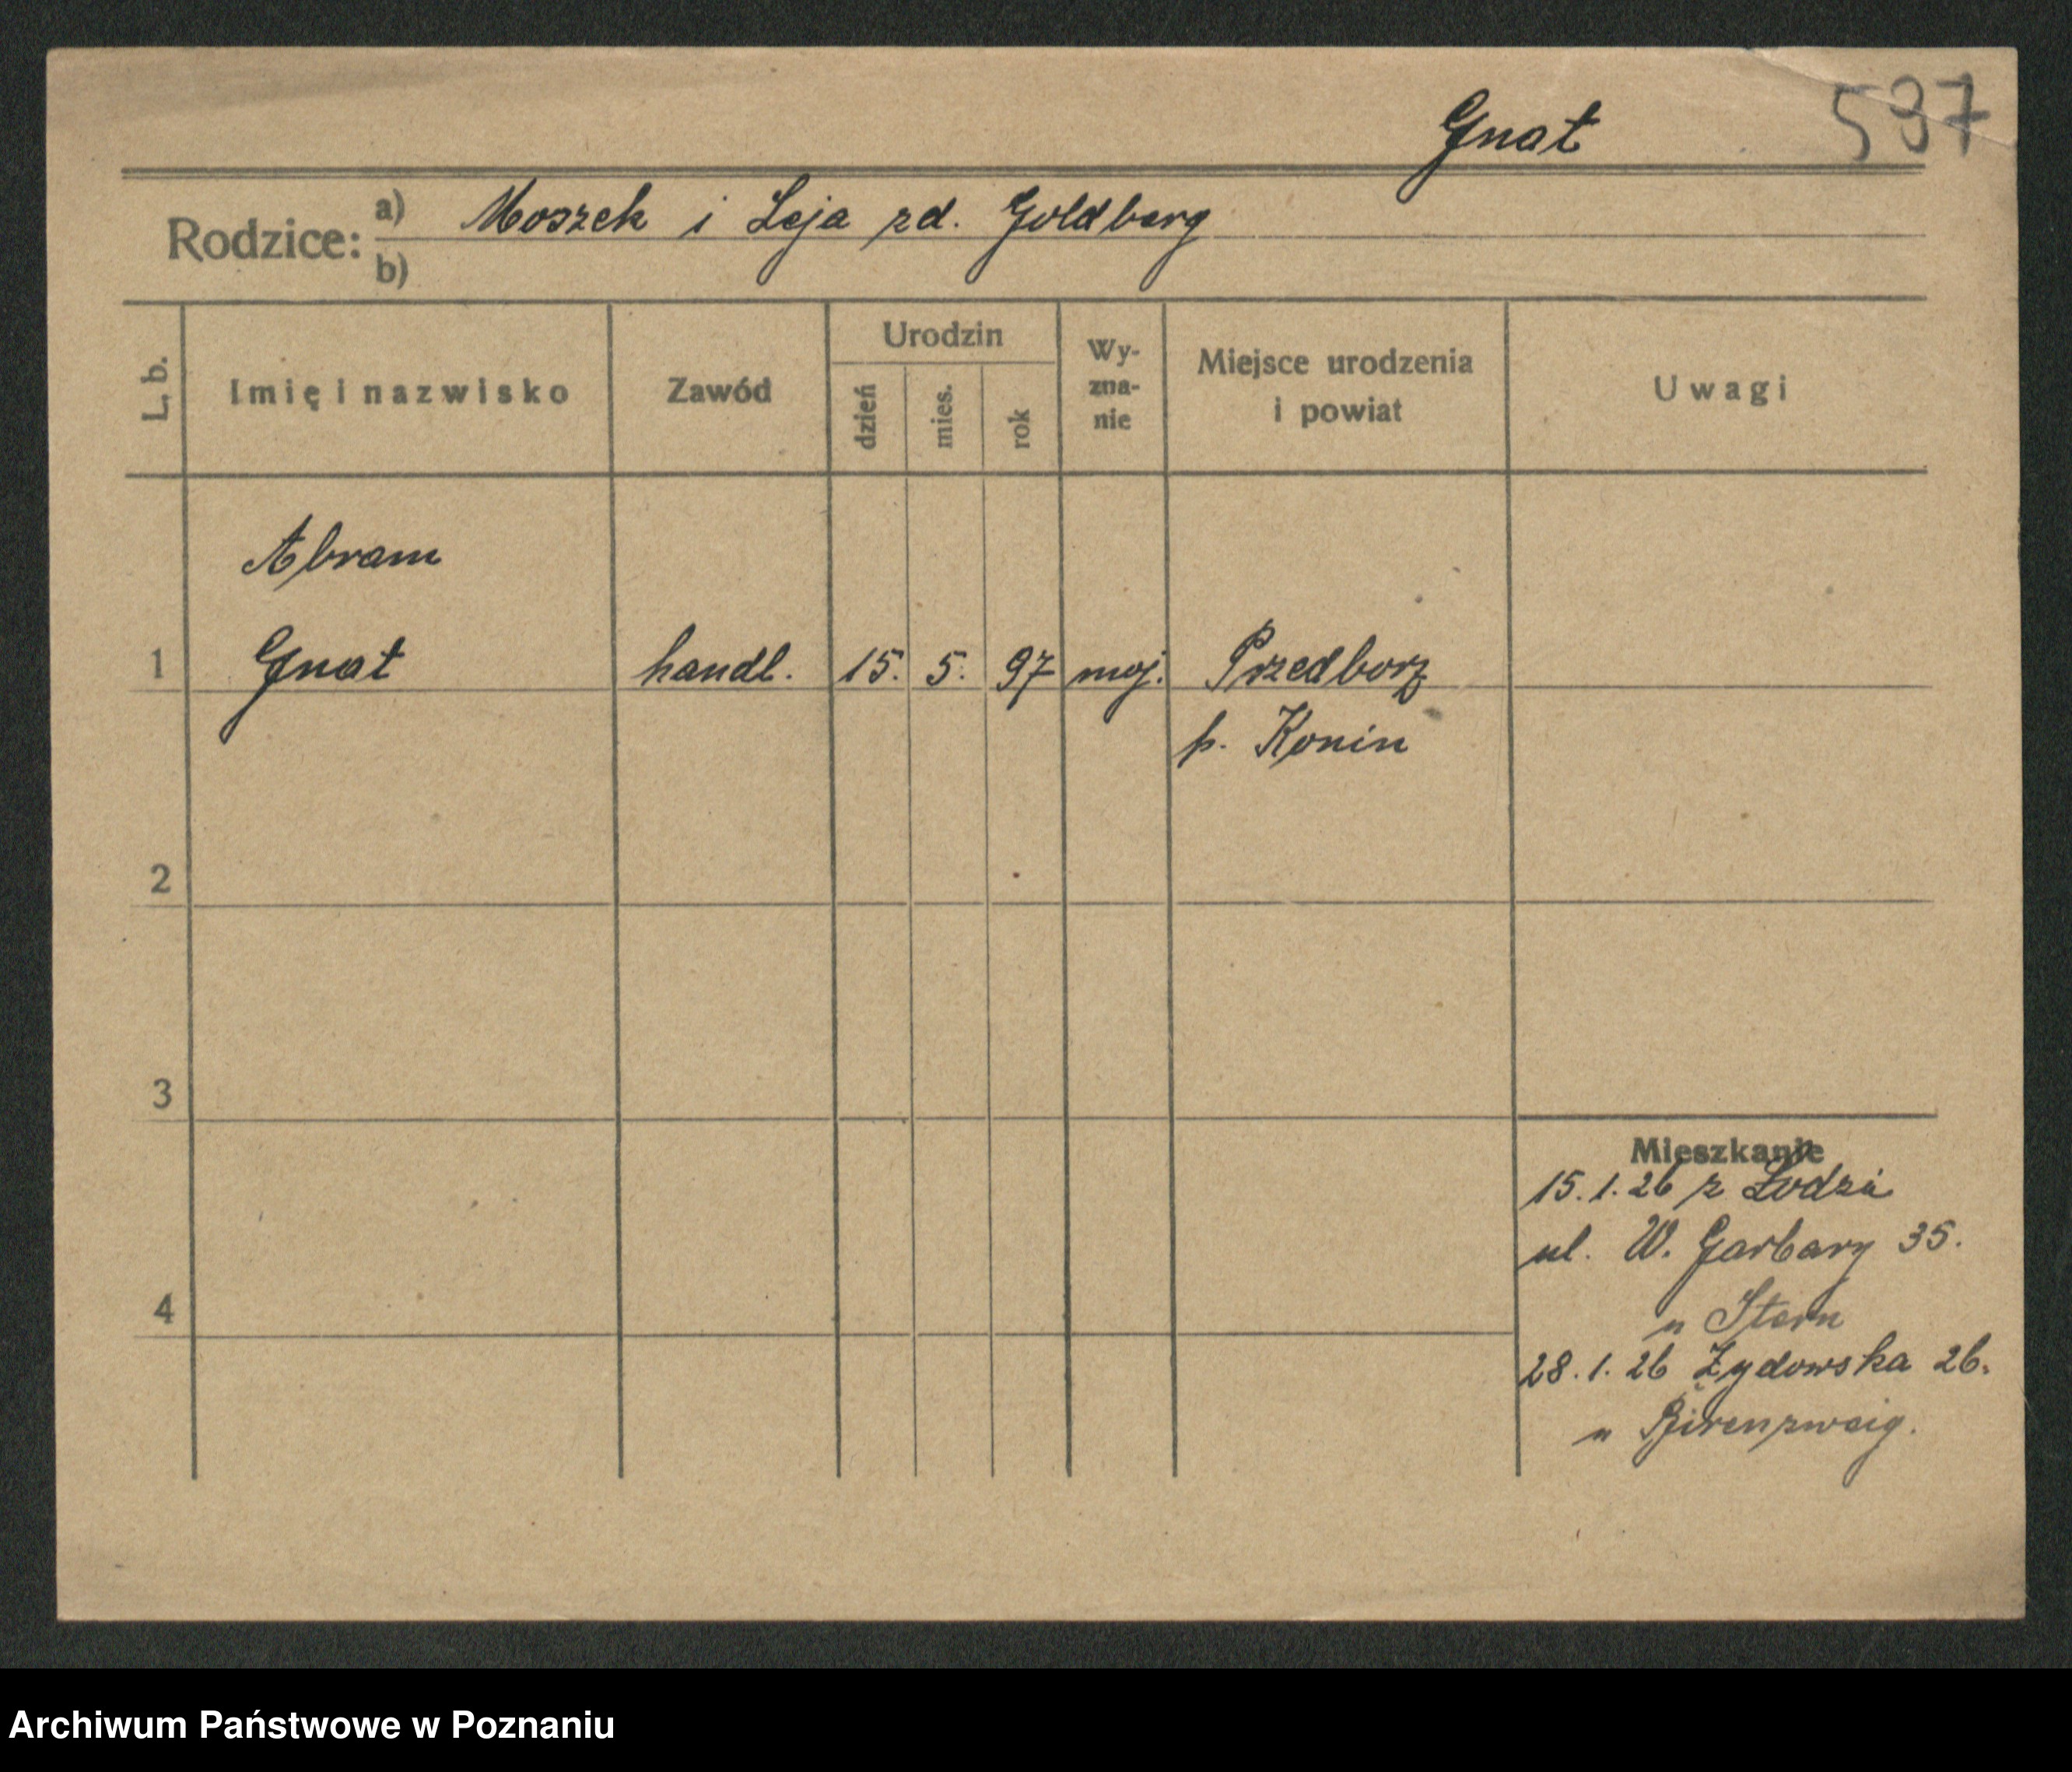 Gnat 597
Rodzice: a) Moszek i Leja zd. Goldberg
b)
L. b. Imię i nazwisko Zawód Urodzin dzień mies. rok Wy-zna-nie Miejsce urodzenia i powiat Uwagi
Abram
1 Gnat handl. 15. 5. 97 moj. Przedborz
p. Konin
2
3
Mieszkanie
15.1.26 z Łodzi
ul. W. Garbary 35.
u Stern
4
28.1.26 Żydowska 26.
u Birenzweig.
Archiwum Państwowe w Poznaniu